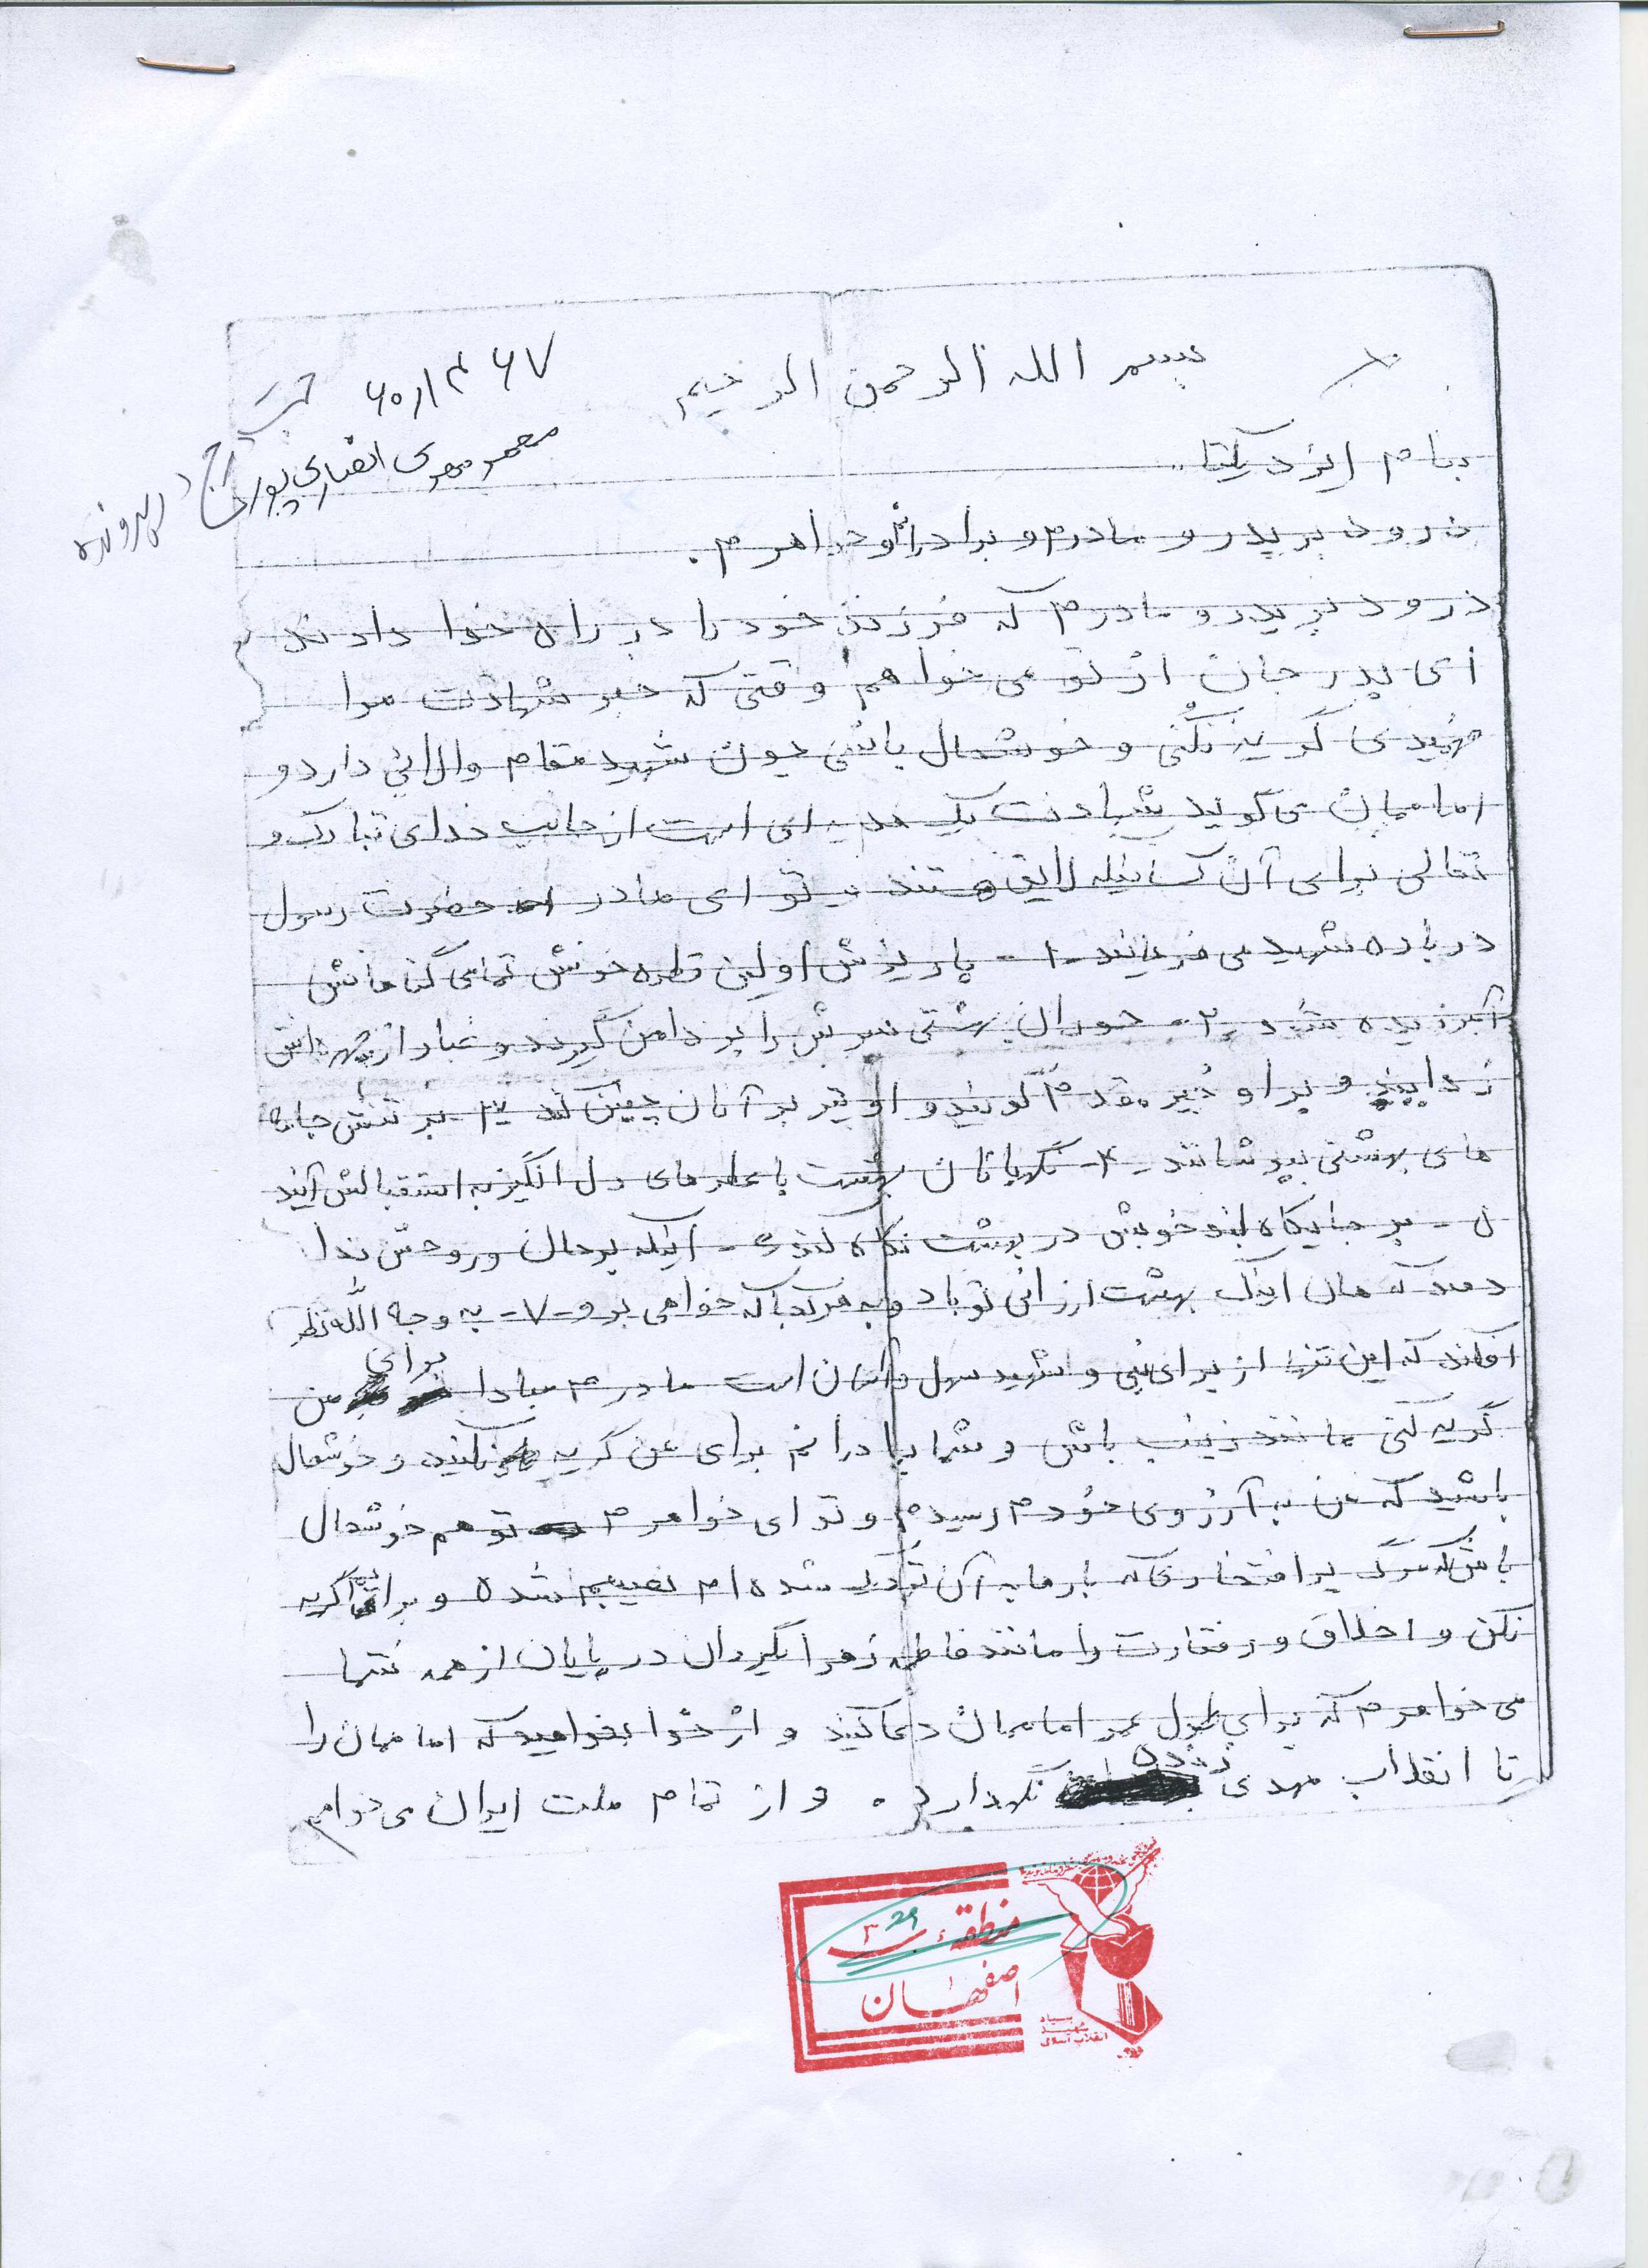 بسم الله الرحمن الرحیم
۶۰۱۴۶۷
محمد مهدی انصاری پور
درج در پرونده
بنام ایزد یکتا..
درود بر پدر و مادرم و برادرانم و خواهرم.
درود بر پدر و مادرم که فرزند خود را در راه خدا دادند
ای پدر جان از تو می خواهم وقتی که خبر شهادت مرا
فهمیدی گریه نکنی و خوشحال باشی چون شهید مقام والائی دارد و
امام مان می گوید شهادت یک هدیه ای است از جانب خدای تبارک و
تعالی برای آن کسانیکه لایق هستند و تو ای مادر حضرت رسول
درباره شهید می فرمایند ۱- با ریزش اولین قطره خونش تمامی گناهانش
آمرزیده شود ۲- حوران بهشتی سرش را بر دامن گیرند و غبار از چهره اش
زدایند و بر او خیر مقدم گویند و او نیز بر آنان چنین کند ۳- بر تنش جامه
های بهشتی بپوشانند ۴- نگهبانان بهشت با عطرهای دل انگیز به استقبالش آیند
۵- بر جایگاه خویش در بهشت نگاه کند ۶- آنکه بر جان و روحش ندا
دهند که هان اینک بهشت ارزانی تو باد و به هر کجا که خواهی برو ۷- به وجه الله نظر
افکند که این تنها از برای نبی و شهید سهل و آسان است مادرم مبادا برای من
گریه کنی مانند زینب باش و شما برادرانم برای من گریه نکنید و خوشحال
باشید که من به آرزوی خودم رسیدم و تو ای خواهرم تو هم خوشحال
باش که مرگ پر افتخاری که بارها به آن نزدیک شده ام نصیبم شده و برایم گریه
نکن و اخلاق و رفتارت را مانند فاطمه زهرا بگردان در پایان از همه شما
می خواهم که برای طول عمر امام مان دعا کنید و از خدا بخواهید که امام مان را
تا انقلاب مهدی زنده نگهدارد. و از تمام ملت ایران می خواهم
منطقه ۳
29
اصفهان
بنیاد
شهید
انقلاب اسلامی